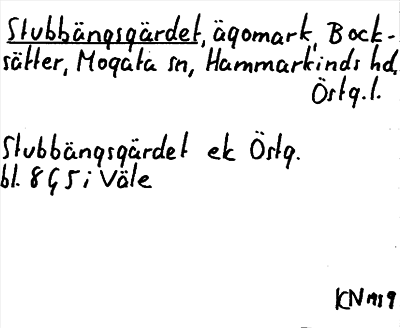 Stubbängsgärdet, ägomark, Bock-
sätter, Mogata sn, Hammarkinds hd,
Östg.l.
Stubbängsgärdet ek Östg.
bl. 8 G 5 i Väle
KN 1919